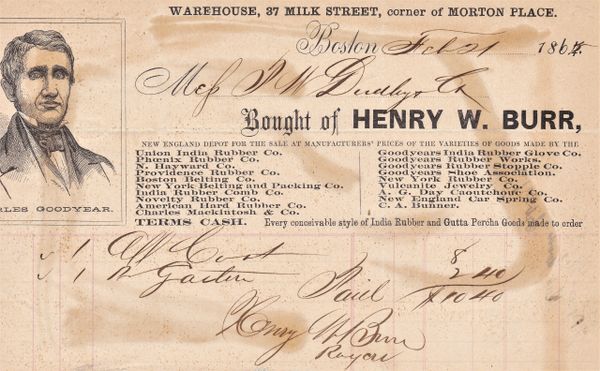 WAREHOUSE, 37 MILK STREET, corner of MORTON PLACE.
Boston Feb 21 186
Mess Dudley & Co
Bought of HENRY W. BURR,
NEW ENGLAND DEPOT FOR THE SALE AT MANUFACTURERS' PRICES OF THE VARIETIES OF GOODS MADE BY THE
Union India Rubber Co.
Phoenix Rubber Co.
N. Hayward Co.
Providence Rubber Co.
Boston Belting Co.
New York Belting and Packing Co.
India Rubber Comb Co.
Novelty Rubber Co.
American Hard Rubber Co.
Charles Mackintosh & Co.
Goodyears India Rubber Glove Co.
Goodyears Rubber Works.
Goodyears Rubber Stopple Co.
Goodyears Shoe Association.
New York Rubber Co.
Vulcanite Jewelry Co.
A. G. Day Caoutchouc Co.
New England Car Spring Co.
C. A. Bunner.
RLES GOODYEAR.
TERMS CASH. Every conceivable style of India Rubber and Gutta Percha Goods made to order
1 Coat 8
1 Gaiters 2 40
Paid $10 40
Henry W Burr